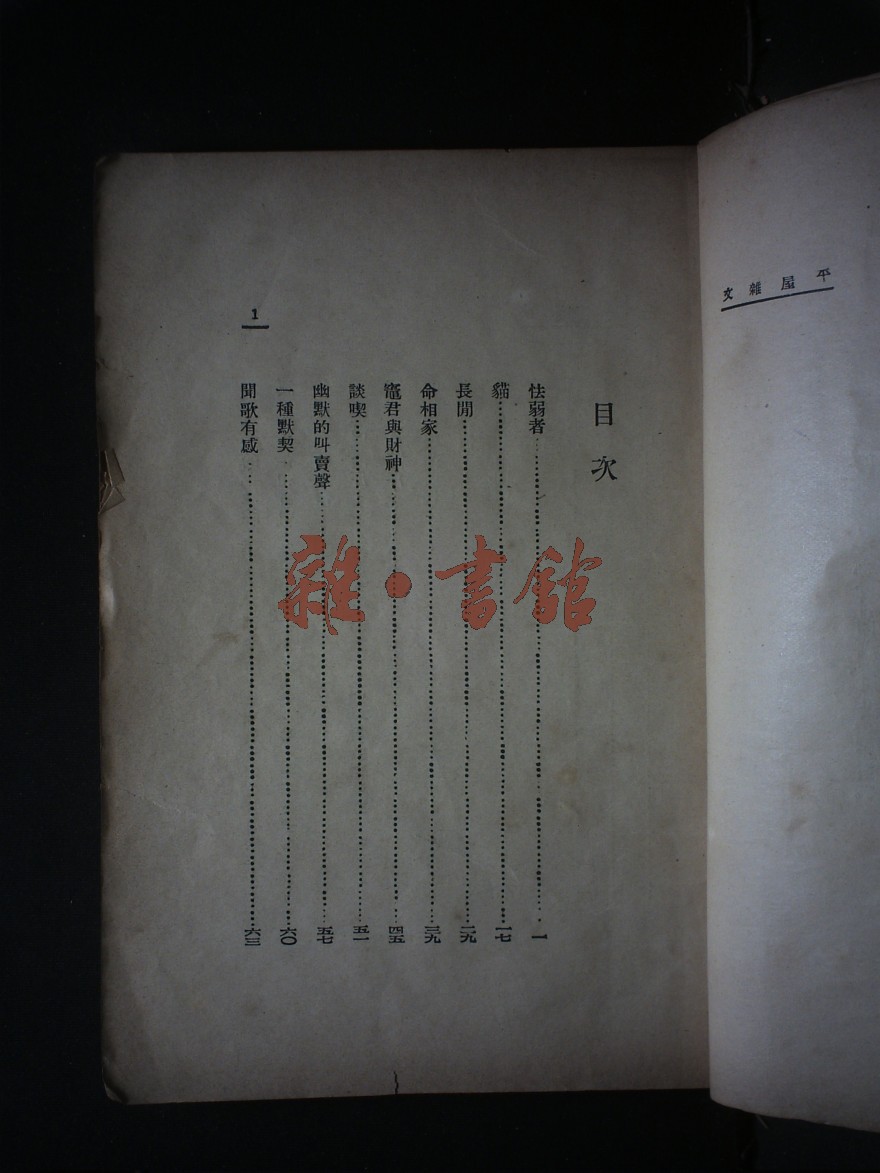 平屋雜文
目次
怯弱者⋯⋯⋯⋯一
貓⋯⋯⋯⋯一七
長閒⋯⋯⋯⋯二九
命相家⋯⋯⋯⋯三九
竈君與財神⋯⋯⋯⋯四五
談喫⋯⋯⋯⋯五一
幽默的叫賣聲⋯⋯⋯⋯五七
一種默契⋯⋯⋯⋯六〇
聞歌有感⋯⋯⋯⋯六三
1
雜·書館